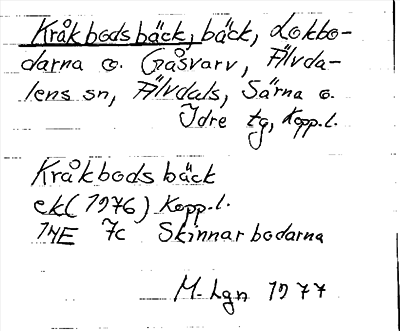 Kråkbodsbäck, bäck, Lokbo-
darna o. Gåsvarv, Älvda-
lens sn, Älvdals, Särna o.
Idre tg, Kopp.l.
Kråkbodsbäck
ek (1976) Kopp.l.
14E 7c Skinnarbodarna
M. Lgn 1977